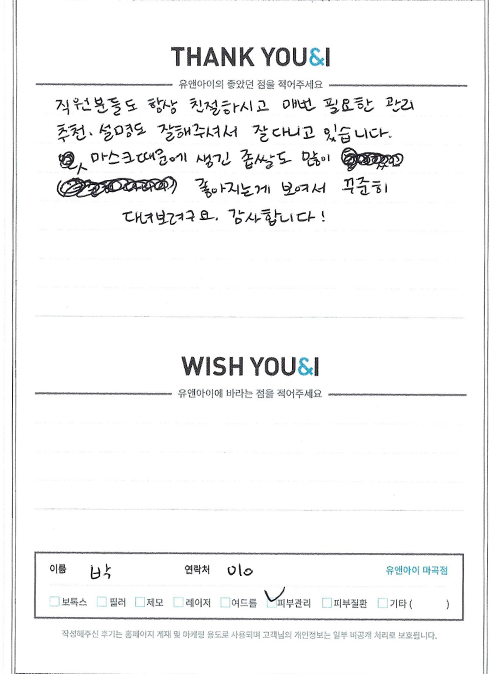 THANK YOU&I
유앤아이의 좋았던 점을 적어주세요
직원분들도 항상 친절하시고 매번 필요한 관리
추천, 설명도 잘해주셔서 잘 다니고 있습니다.
마스크때문에 생긴 좁쌀도 많이
좋아지는게 보여서 꾸준히
다녀보려구요. 감사합니다!
WISH YOU&I
유앤아이에 바라는 점을 적어주세요
이름 박 연락처 010 유앤아이 마곡점
보톡스 필러 제모 레이저 여드름 피부관리 피부질환 기타 ( )
작성해주신 후기는 홈페이지 게재 및 마케팅 용도로 사용되며 고객님의 개인정보는 일부 비공개 처리로 보호됩니다.